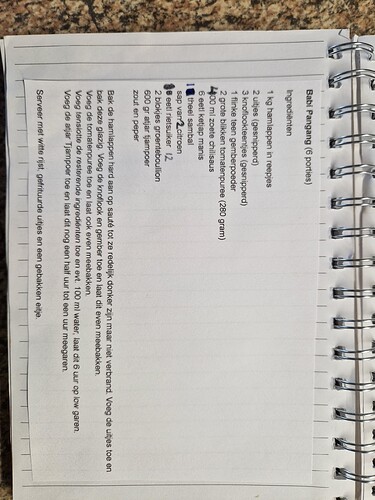 Babi Pangang (6 porties)
Ingrediënten
1 kg hamlappen in reepjes
2 uitjes (gesnipperd)
3 knoflookteentjes (gesnipperd)
1 flinke teen gemberpoeder
2 grote blikken tomatenpuree (280 gram)
400 ml zoete chilisaus
6 eetl ketjap manis
theel sambal
sap van 2 citroen
eetl rietsuiker 12
2 blokjes groentebouillon
600 gr atjar tjampoer
zout en peper
Bak de hamlappen hard aan op sauté tot ze redelijk donker zijn maar niet verbrand. Voeg de uitjes toe en
bak deze glazig. Voeg de knoflook en gember toe en laat dit even meebakken.
Voeg de tomatenpuree toe en laat ook even meebakken.
Voeg tenslotte de resterende ingrediënten toe en evt. 100 ml water, laat dit 6 uur op low garen.
Voeg de atjar Tjampoer toe en laat dit nog een half uur tot een uur meegaren.
Serveer met witte rijst, gefrituurde uitjes en een gebakken eitje.